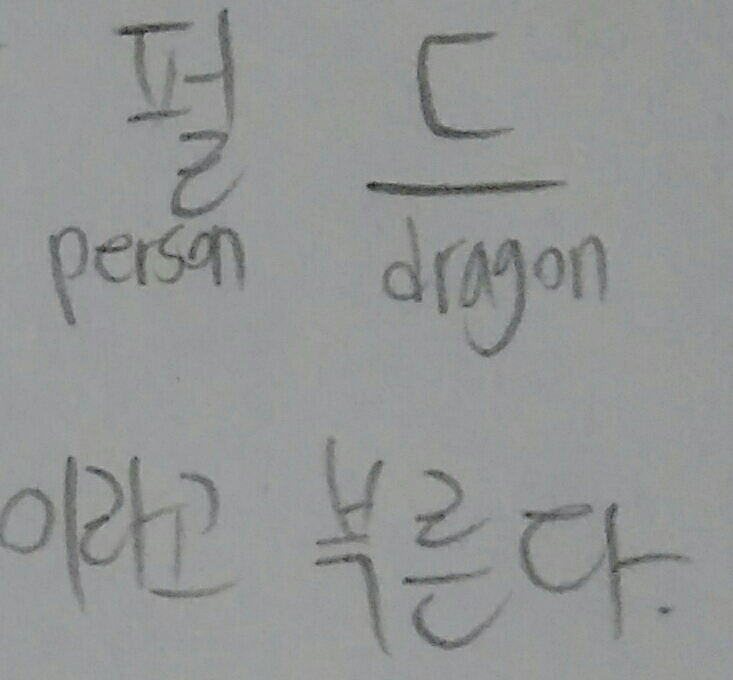 펄 드
person dragon
이라고 부른다.